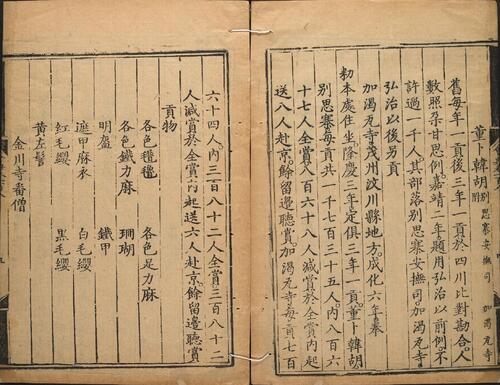 董卜韓胡 別思寨安撫司 加渴瓦寺附
舊每年一貢後三年一貢於四川比對勘合。人
數照杂甘思例。嘉靖二年題用弘治以前例。不
許過一千人。其部落別思寨安撫司。加渴瓦寺。
弘治以後另貢
加渴瓦寺。茂州汶川縣地方。成化六年奉
勑本處住坐。隆慶三年定俱三年一貢。董卜韓胡
別思寨每貢共一千七百三十五人。內八百六
十七人。全賞八百六十八人。減賞於全賞內起
送八人赴京。餘留邊聽賞。加渴瓦寺。每貢七百
六十四人。內三百八十二人全賞三百八十二
人減賞於全賞內起送六人赴京。餘留邊聽賞
貢物
各色氆氇 各色足力麻
各色鐵力麻 珊瑚
明盔 鐵甲
遮甲麻衣 白毛纓
紅毛纓 黑毛纓
黄左髻
金川寺番僧